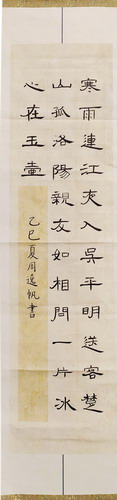 寒雨連江夾入吳平明送客楚
山孤洛陽親友如相問一片冰
心在玉壺
乙巳夏周逸帆書